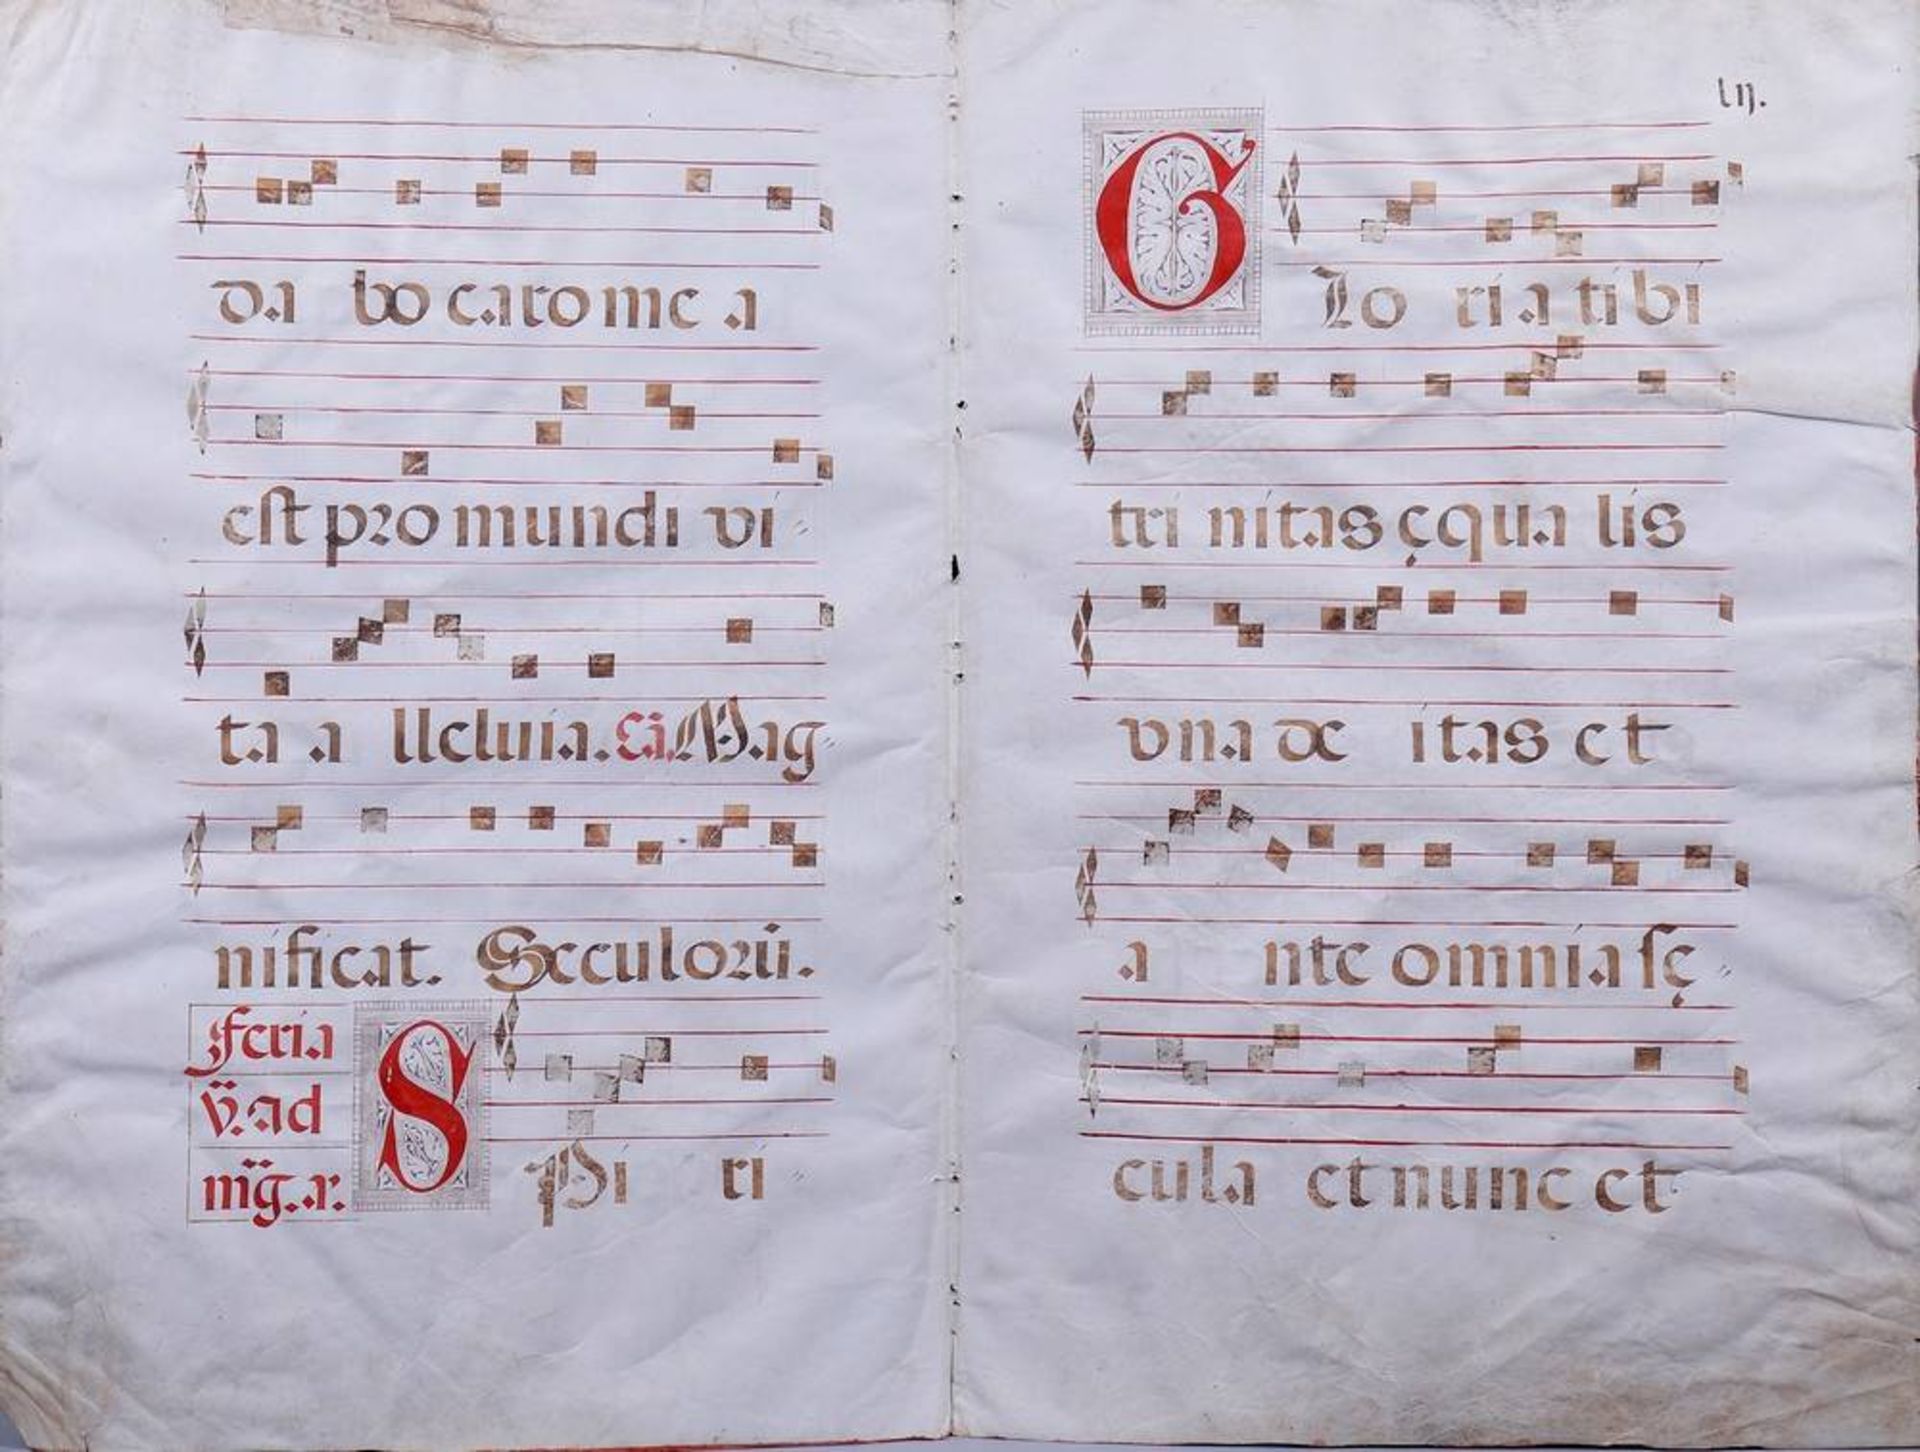 da bo caro me a
est pro mundi vi=
ta a lleluia. Ca. Mag=
nificat. Seculorū.
feria
v̈. ad
m̈g. a.
S Pi ri=
lij.
G lo ria tibi
tri nitas ęqua lis
vna de itas et
a nte omnia sę=
cula et nunc et